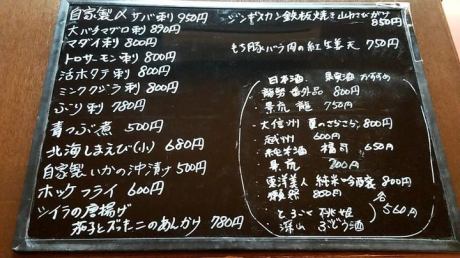 自家製〆サバ刺 950円
大バチマグロ刺 890円
マダイ刺 800円
トロサーモン刺 800円
活ホタテ刺 800円
ミンククジラ刺 800円
ぶり刺 780円
青つぶ煮 500円
北海しまえび(小) 680円
自家製いかの沖漬け 500円
ホッケフライ 600円
シイラの唐揚げ
茄子とズッキーニのあんかけ 780円
ジンギスカン鉄板焼き山わさびがけ
850円
もち豚バラ肉の紅生姜天 750円
日本酒 果実酒 おすすめ
番外品 800円
・景虎 龍 750円
・大信州 夏のさらさら 800円
・越州 600円
・純米酒 650円
・景虎 700円
・東洋美人 純米吟醸 800円
・獺祭 800円
・とろこく 桃姫
・深山 ぶどう酒
各560円